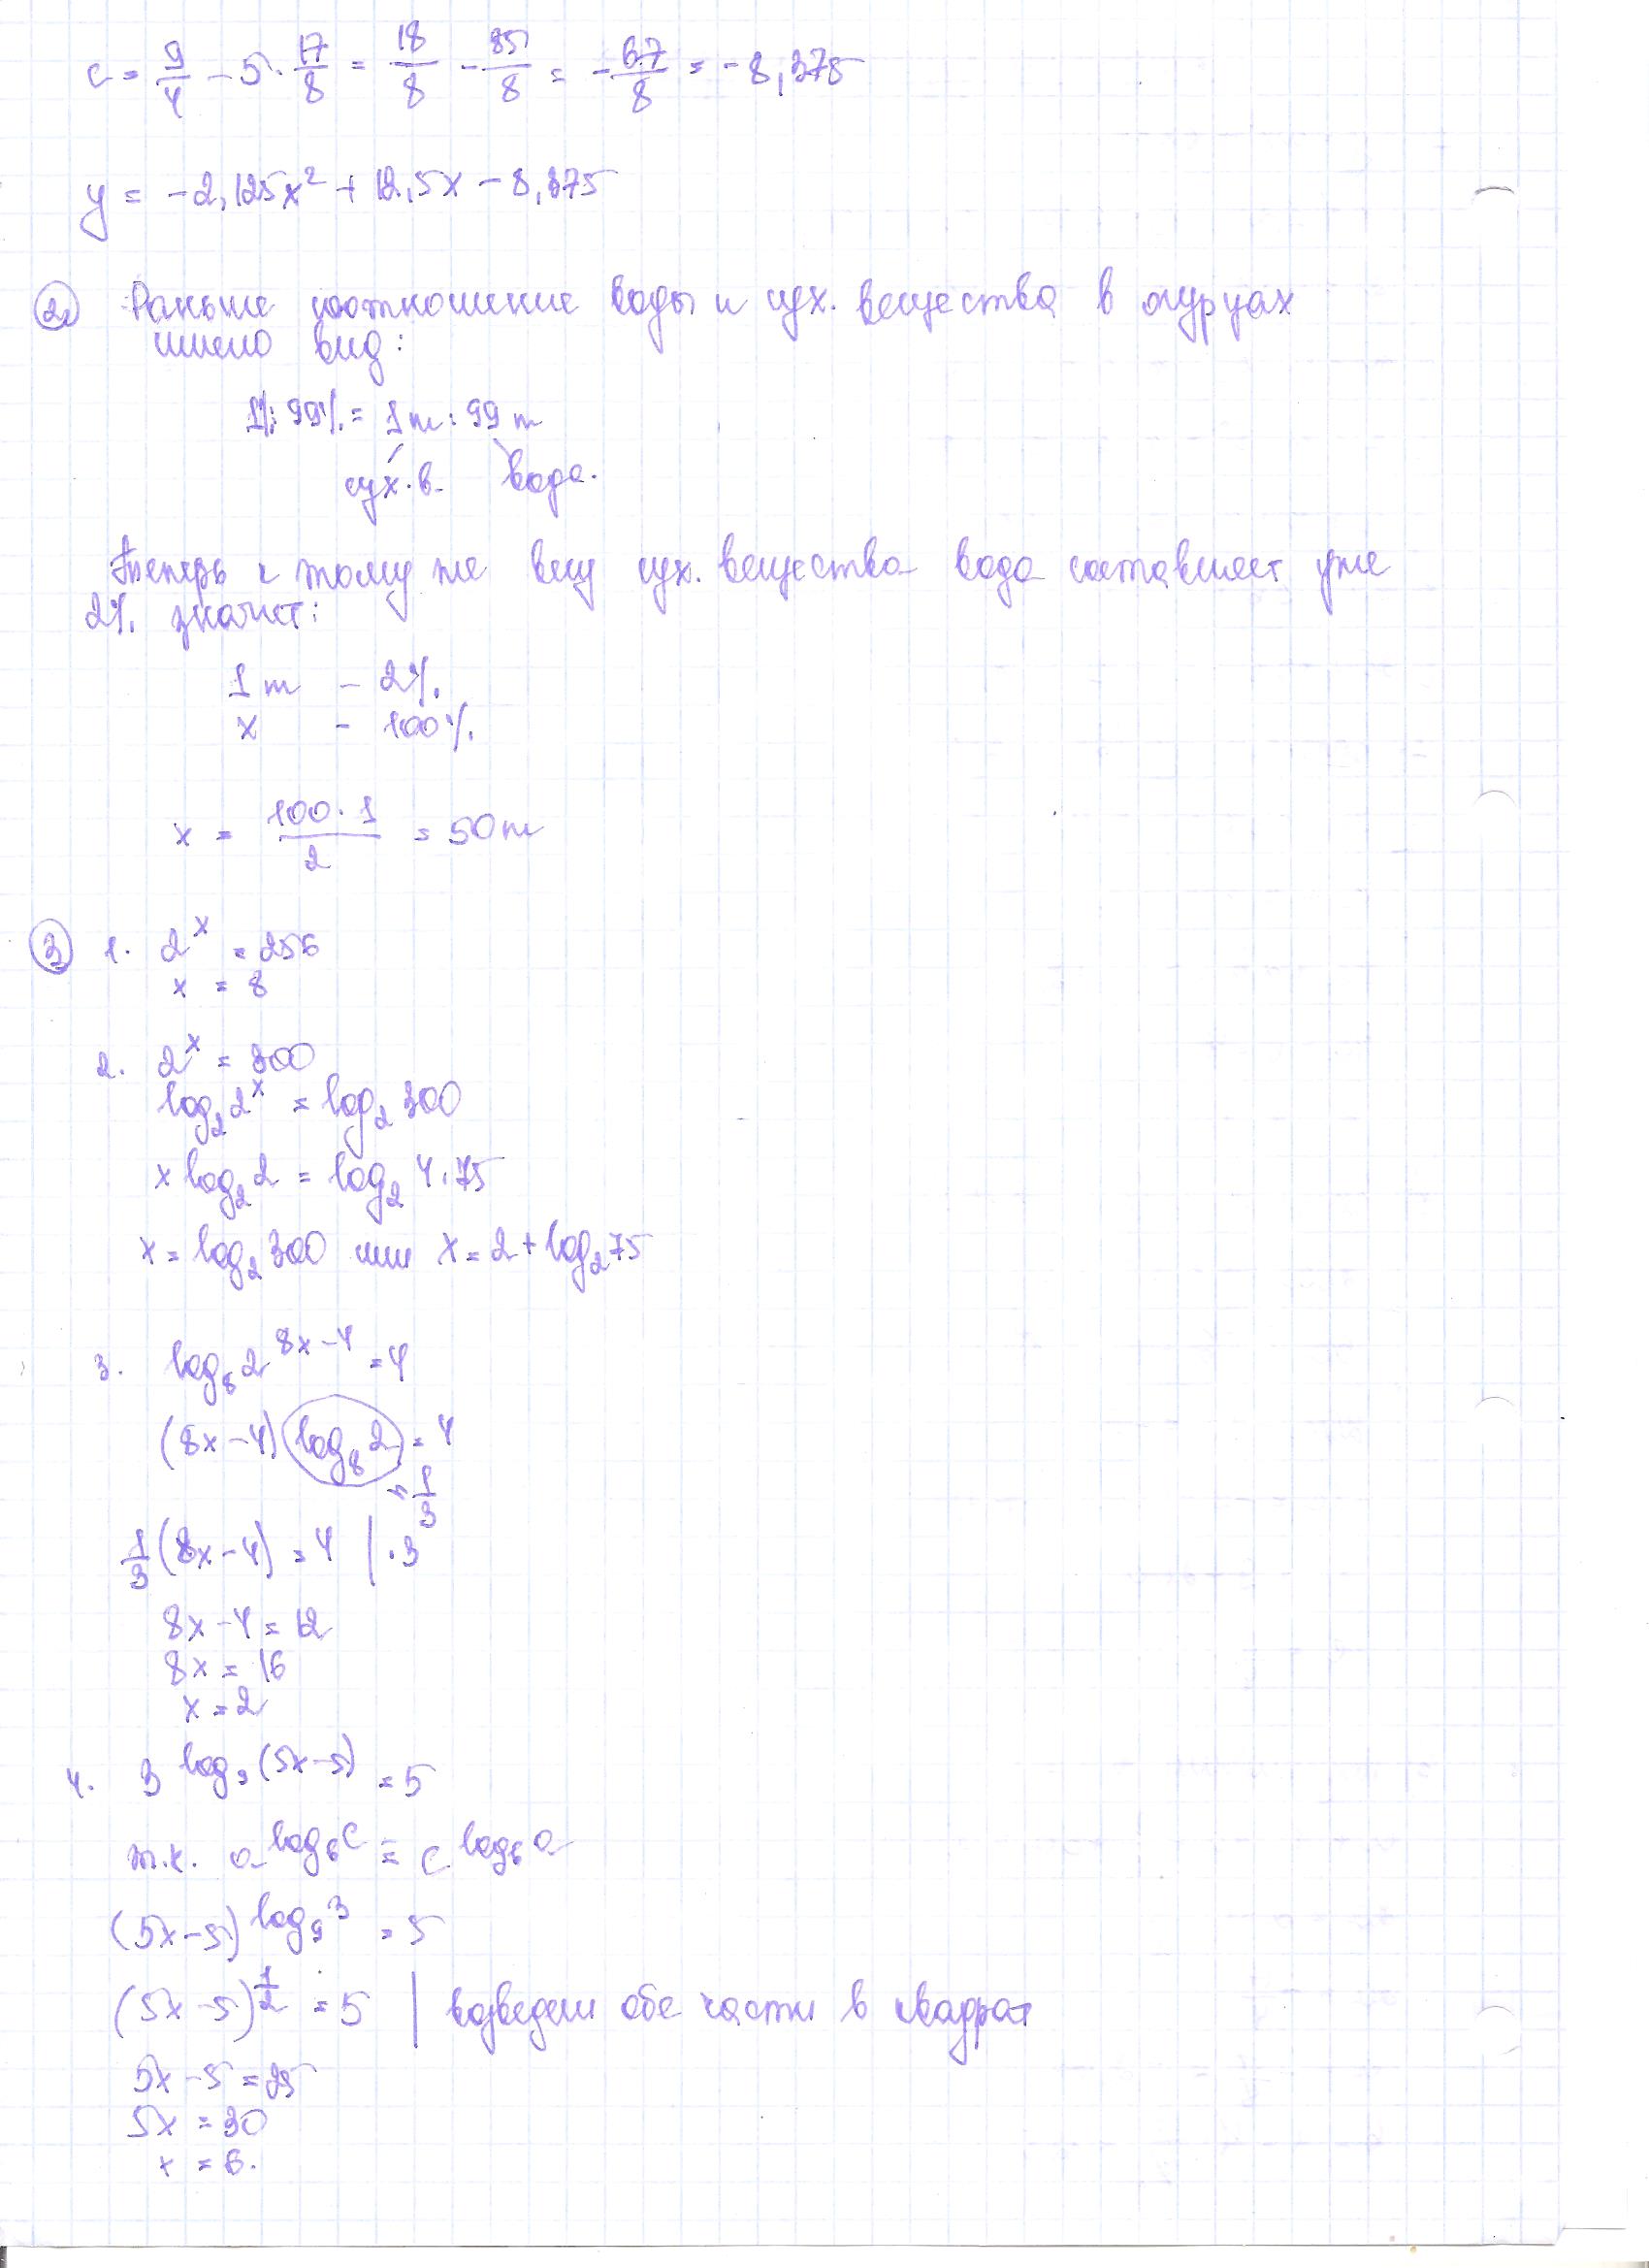 c = 9/4 - 5 · 17/8 = 18/8 - 85/8 = - 67/8 = - 8,375
y = -2,125x² + 12,5x - 8,375
2) Раньше соотношение воды и сух. вещества в огурцах
имело вид:
1%:99% = 1т:99т
сух. в. вода.
Теперь к тому же весу сух. вещества вода составляет уже
2% значит:
1т - 2%
x - 100%
x = 100·1/2 = 50т
3) 1. 2^x = 256
x = 8
2. 2^x = 300
log₂2^x = log₂300
x log₂2 = log₂4·75
x = log₂300 или x = 2 + log₂75
3. log₈2^(8x-4) = 4
(8x-4) log₈2 = 4
= 1/3
1/3(8x-4) = 4 | ·3
8x-4 = 12
8x = 16
x = 2
4. 3^(log₉(5x-5)) = 5
т.к. a^(log_b c) = c^(log_b a)
(5x-5)^(log₉3) = 5
(5x-5)^(1/2) = 5 | возведем обе части в квадрат
5x-5 = 25
5x = 30
x = 6.